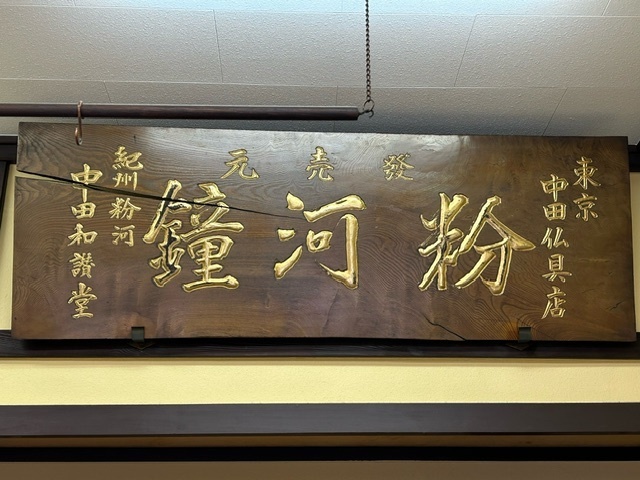 東京
中田仏具店
發売元
粉河鐘
紀州粉河
中田和讃堂